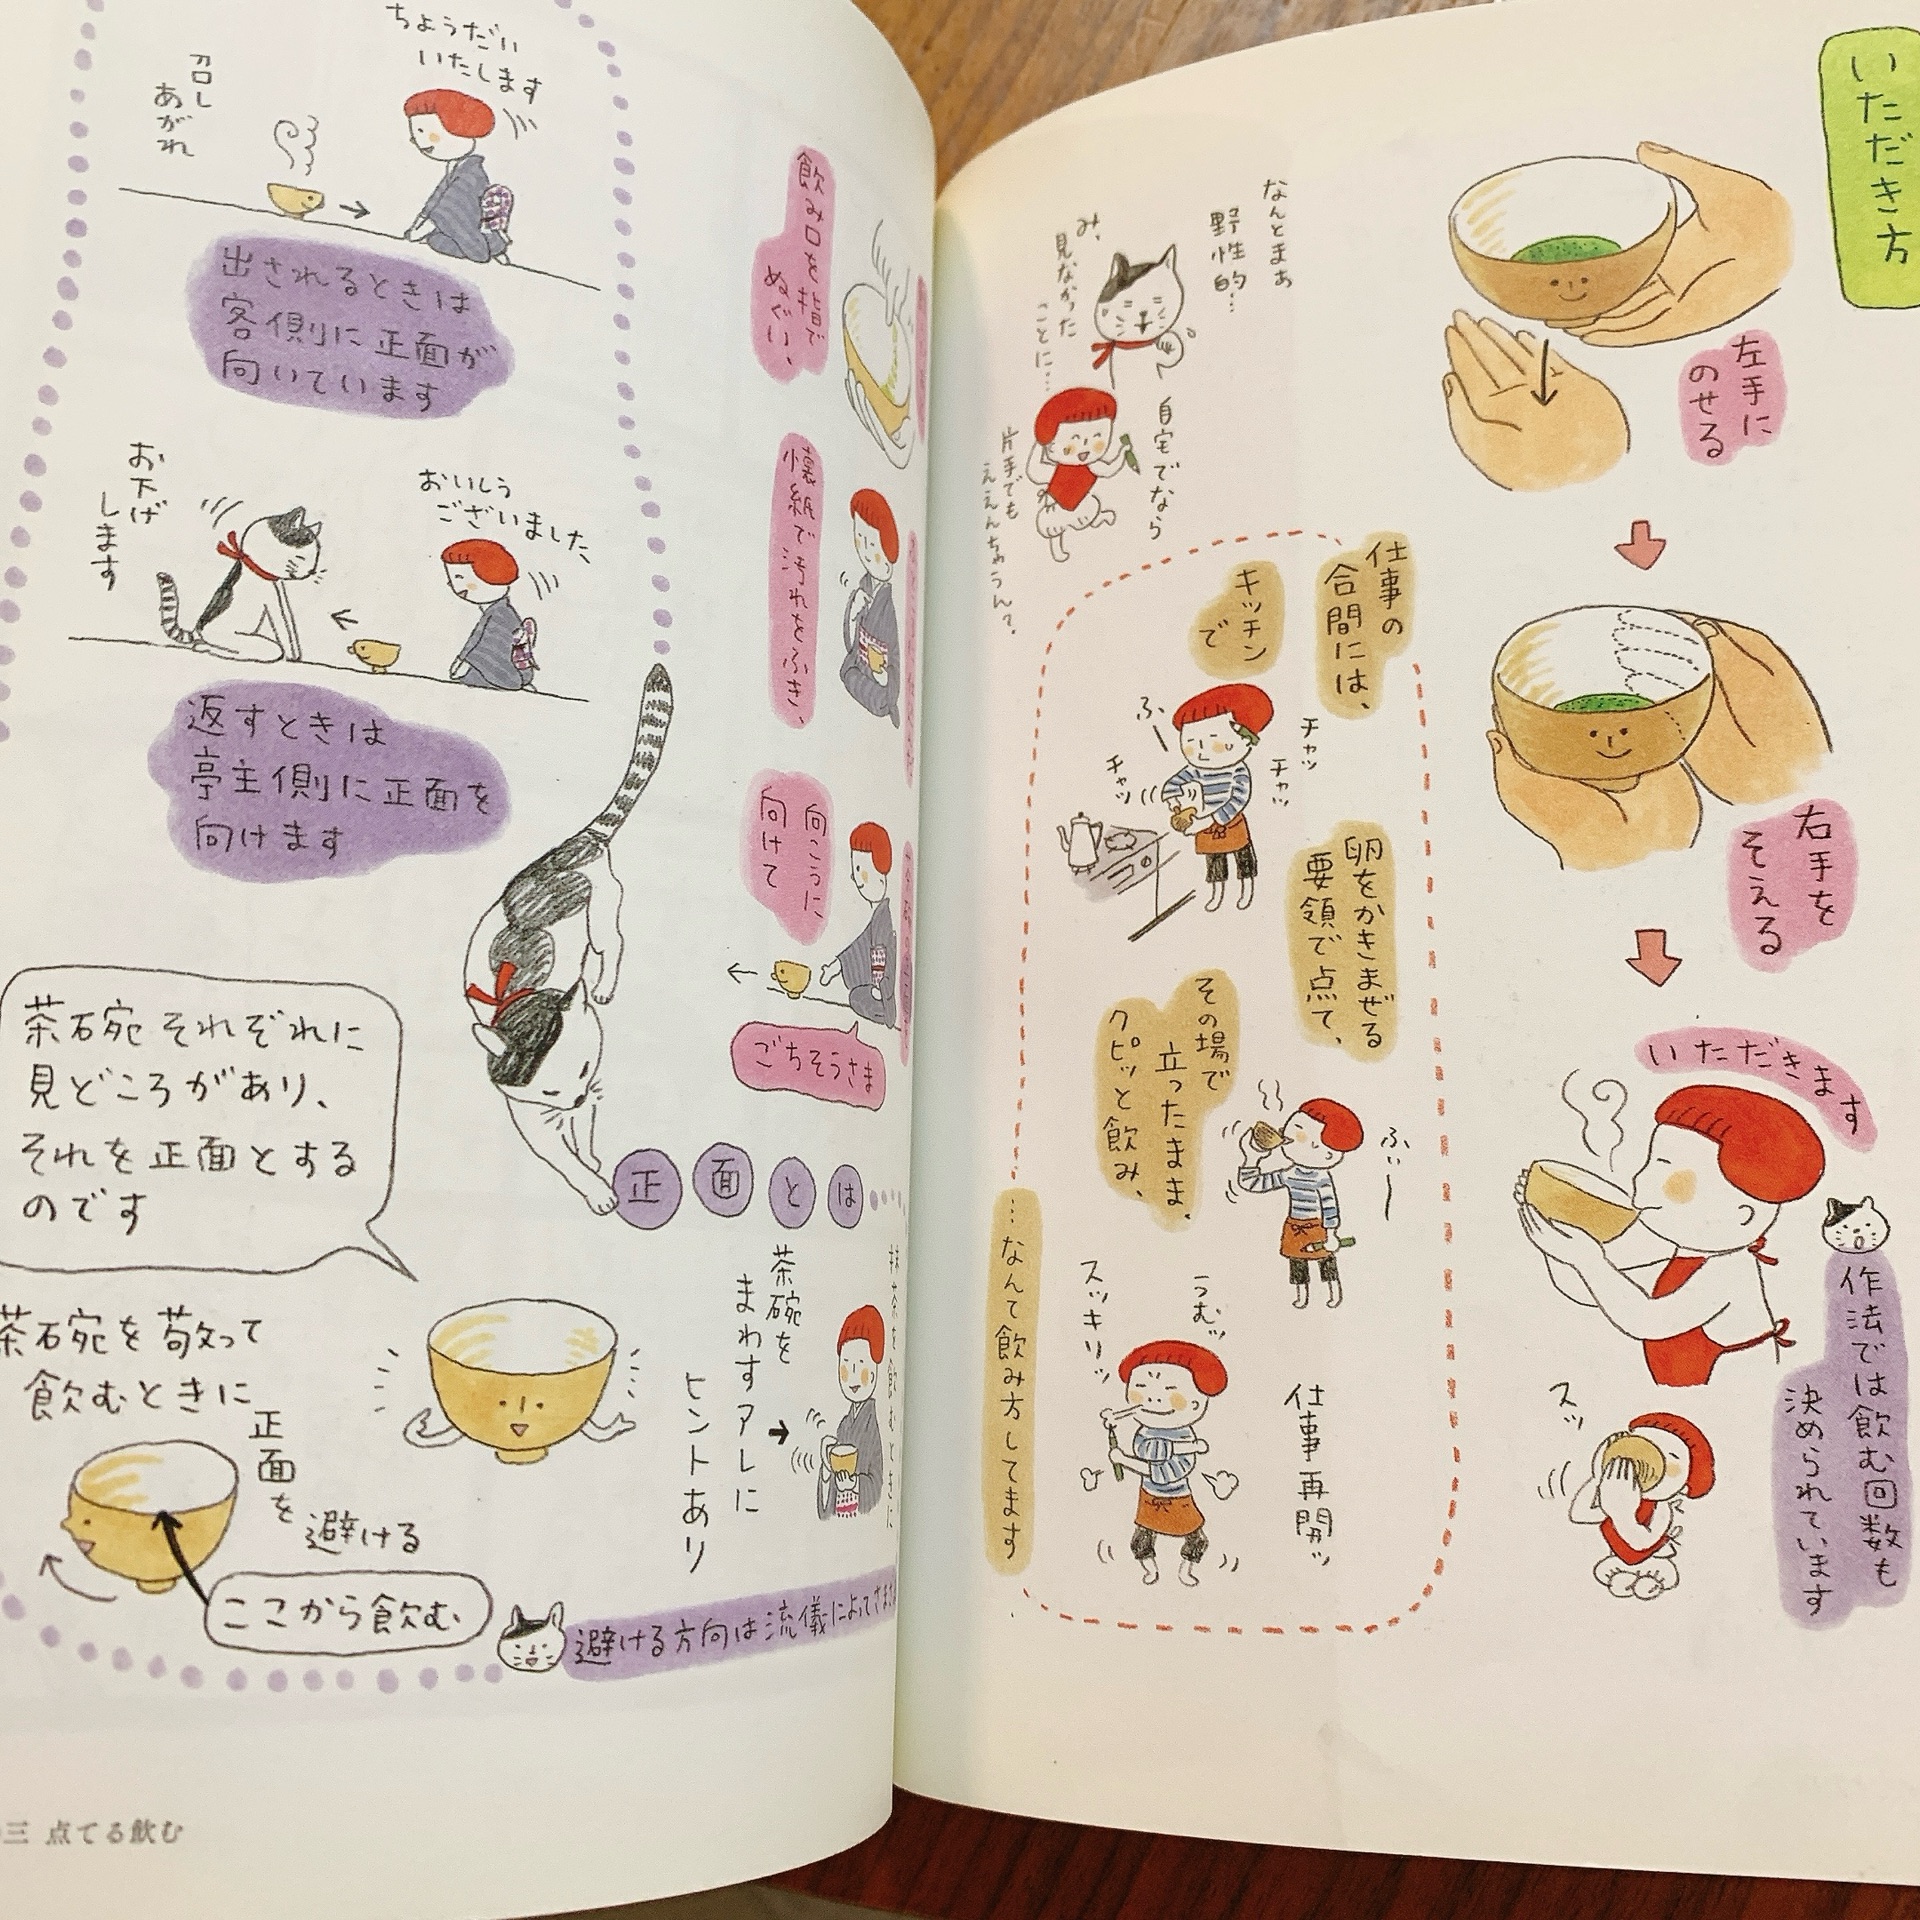 いただき方
左手に
のせる
右手を
そえる
いただきます
作法では飲む回数も
決められています
スッ
なんとまぁ
野性的…
み、
見なかった
ことに…
自宅でなら
片手でも
ええんちゃうんて、
仕事の
合間には、
キッチン
で
ふー
チャッ
チャッ
チャッ
卵をかきまぜる
要領で点て、
その場で
立ったまま、
クピッと飲み、
ふぃー
うむッ
スッキリッ
仕事再開ッ
…なんて飲み方してます
飲み口を指で
ぬぐい、
懐紙で汚れをふき、
向こうに
向けて
ごちそうさま
正面とは
茶碗を
まわすアレに
ヒントあり
ちょうだい
いたします
召し
あがれ
出されるときは
客側に正面が
向いています
おいしう
ございました
お下げ
します
返すときは
亭主側に正面を
向けます
茶碗それぞれに
見どころがあり、
それを正面とする
のです
茶碗を敬って
飲むときに
正面を
避ける
ここから飲む
避ける方向は流儀によって
三 点てる飲む